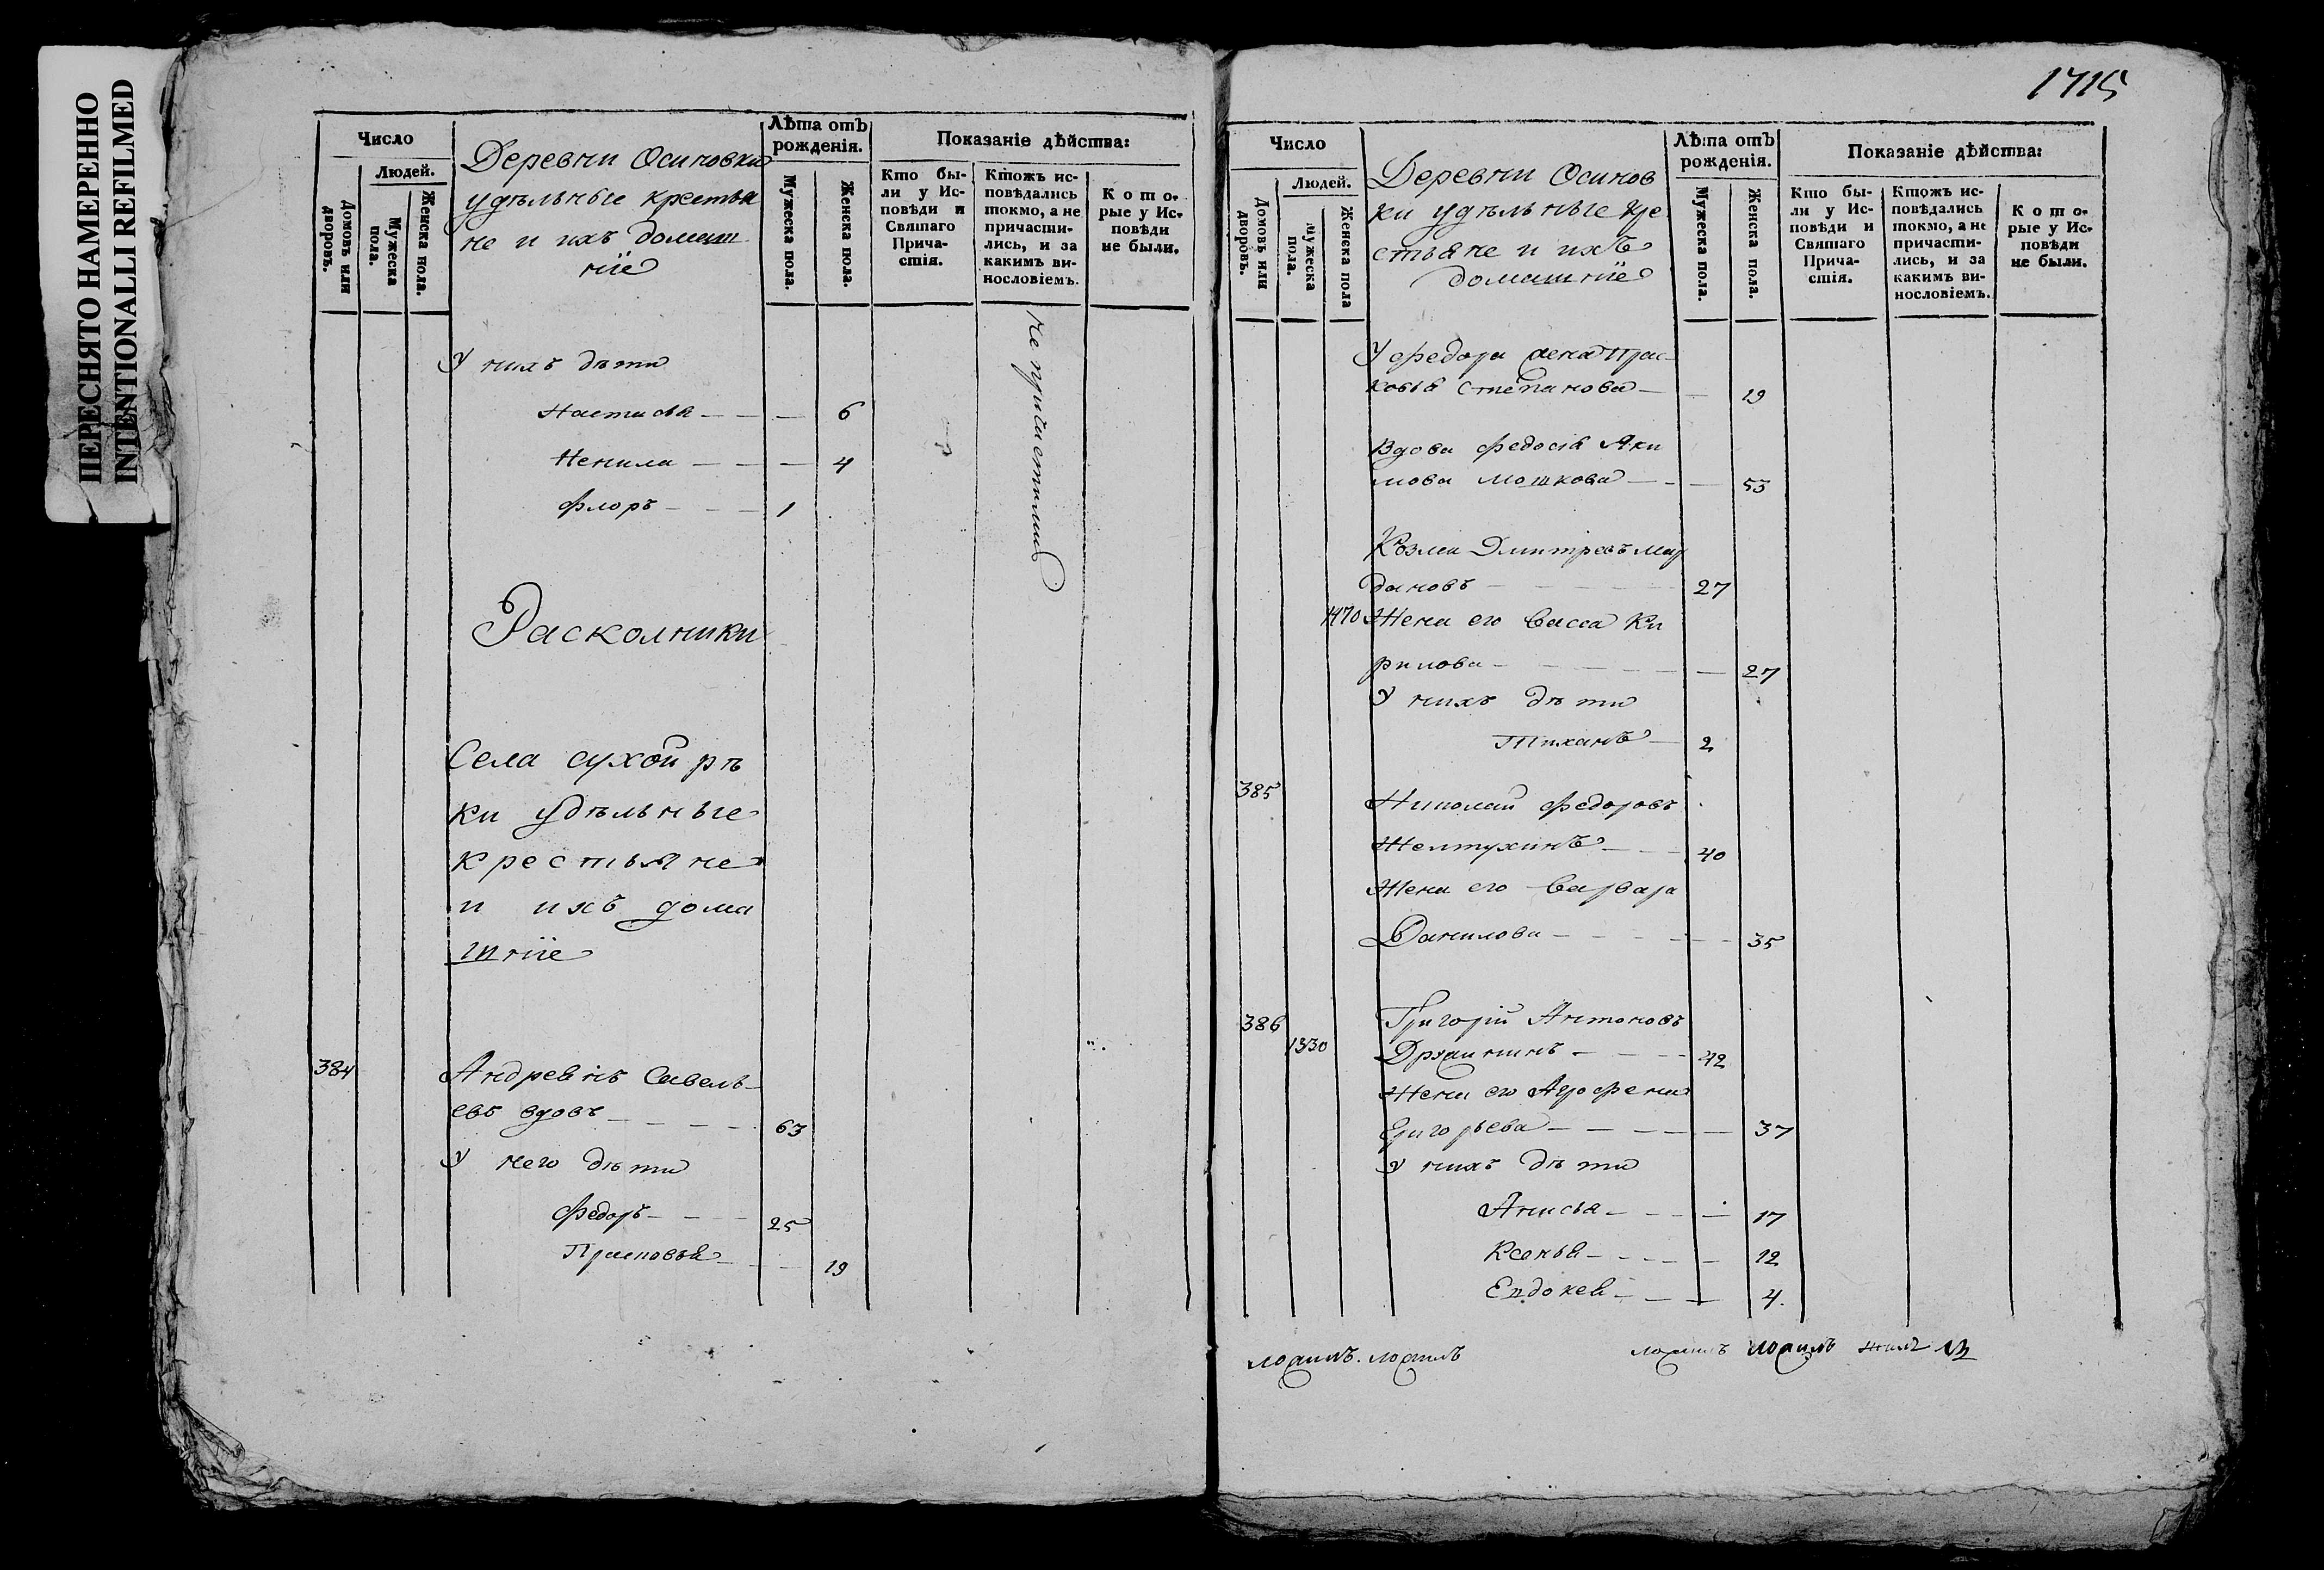 ПЕРЕСНЯТО НАМЕРЕННО
INTENTIONALLI REFILMED
Число
Людей.
Домовъ или дворовъ.
Мужеска пола.
Женска пола.
Деревни Осиновки
удѣльные крестья
не и ихъ домаш
нїе
Лѣта отъ рожденія.
Мужеска пола.
Женска пола.
Показаніе дѣйства:
Кто бы-
ли у Ис-
повѣди и
Святаго
Прича-
стія.
Ктожъ ис-
повѣдались
токмо, а не
причасти-
лись, и за
какимъ ви-
нословіемъ.
Кото-
рые у Ис-
повѣди
не были.
У нихъ дѣти
Настасья — — — 6
Ненила — — — 4
Флоръ — — — 1
Расколники
Села сухой рѣ
ки удѣльные
крестьяне
и ихъ дома
шнїе
384
Савель-
евъ вдовъ — — — — 63
У него дѣти
Федоръ — — — 25
Прасковья — — — 19
1715
Число
Людей.
Домовъ или дворовъ.
Мужеска пола.
Женска пола
Деревни Осинов
ки удѣльные кре
стьяне и ихъ
домашнїе
Лѣта отъ
рожденія.
Мужеска пола.
Женска пола.
Показаніе дѣйства:
Кто бы-
ли у Ис-
повѣди и
Святаго
Прича-
стія.
Ктожъ ис-
повѣдались
токмо, а не
причасти-
лись, и за
какимъ ви-
нословіемъ.
Кото-
рые у Ис-
повѣди
не были.
У Федора жена Прас-
ковья Степанова — — 19
Вдова Федосья Яки
мова Мошкова — — — 53
Козма Дмитревъ Мар
дановъ — — — — 27
1470 Жена его Васса Ки
рилова — — — — — 27
У нихъ дѣти
Тиханъ — 2
385 Николай Федоровъ
Желтухинъ — — — 40
Жена его Варвара
Данилова — — — — — 35
386 Григорій Антоновъ
1330 — — — 42
Жена его Агрофена
Григорьева — — — — — 37
У нихъ дѣти
Анисья — — — — 17
Ксенья — — — — 12
Евдокея — — — 4.